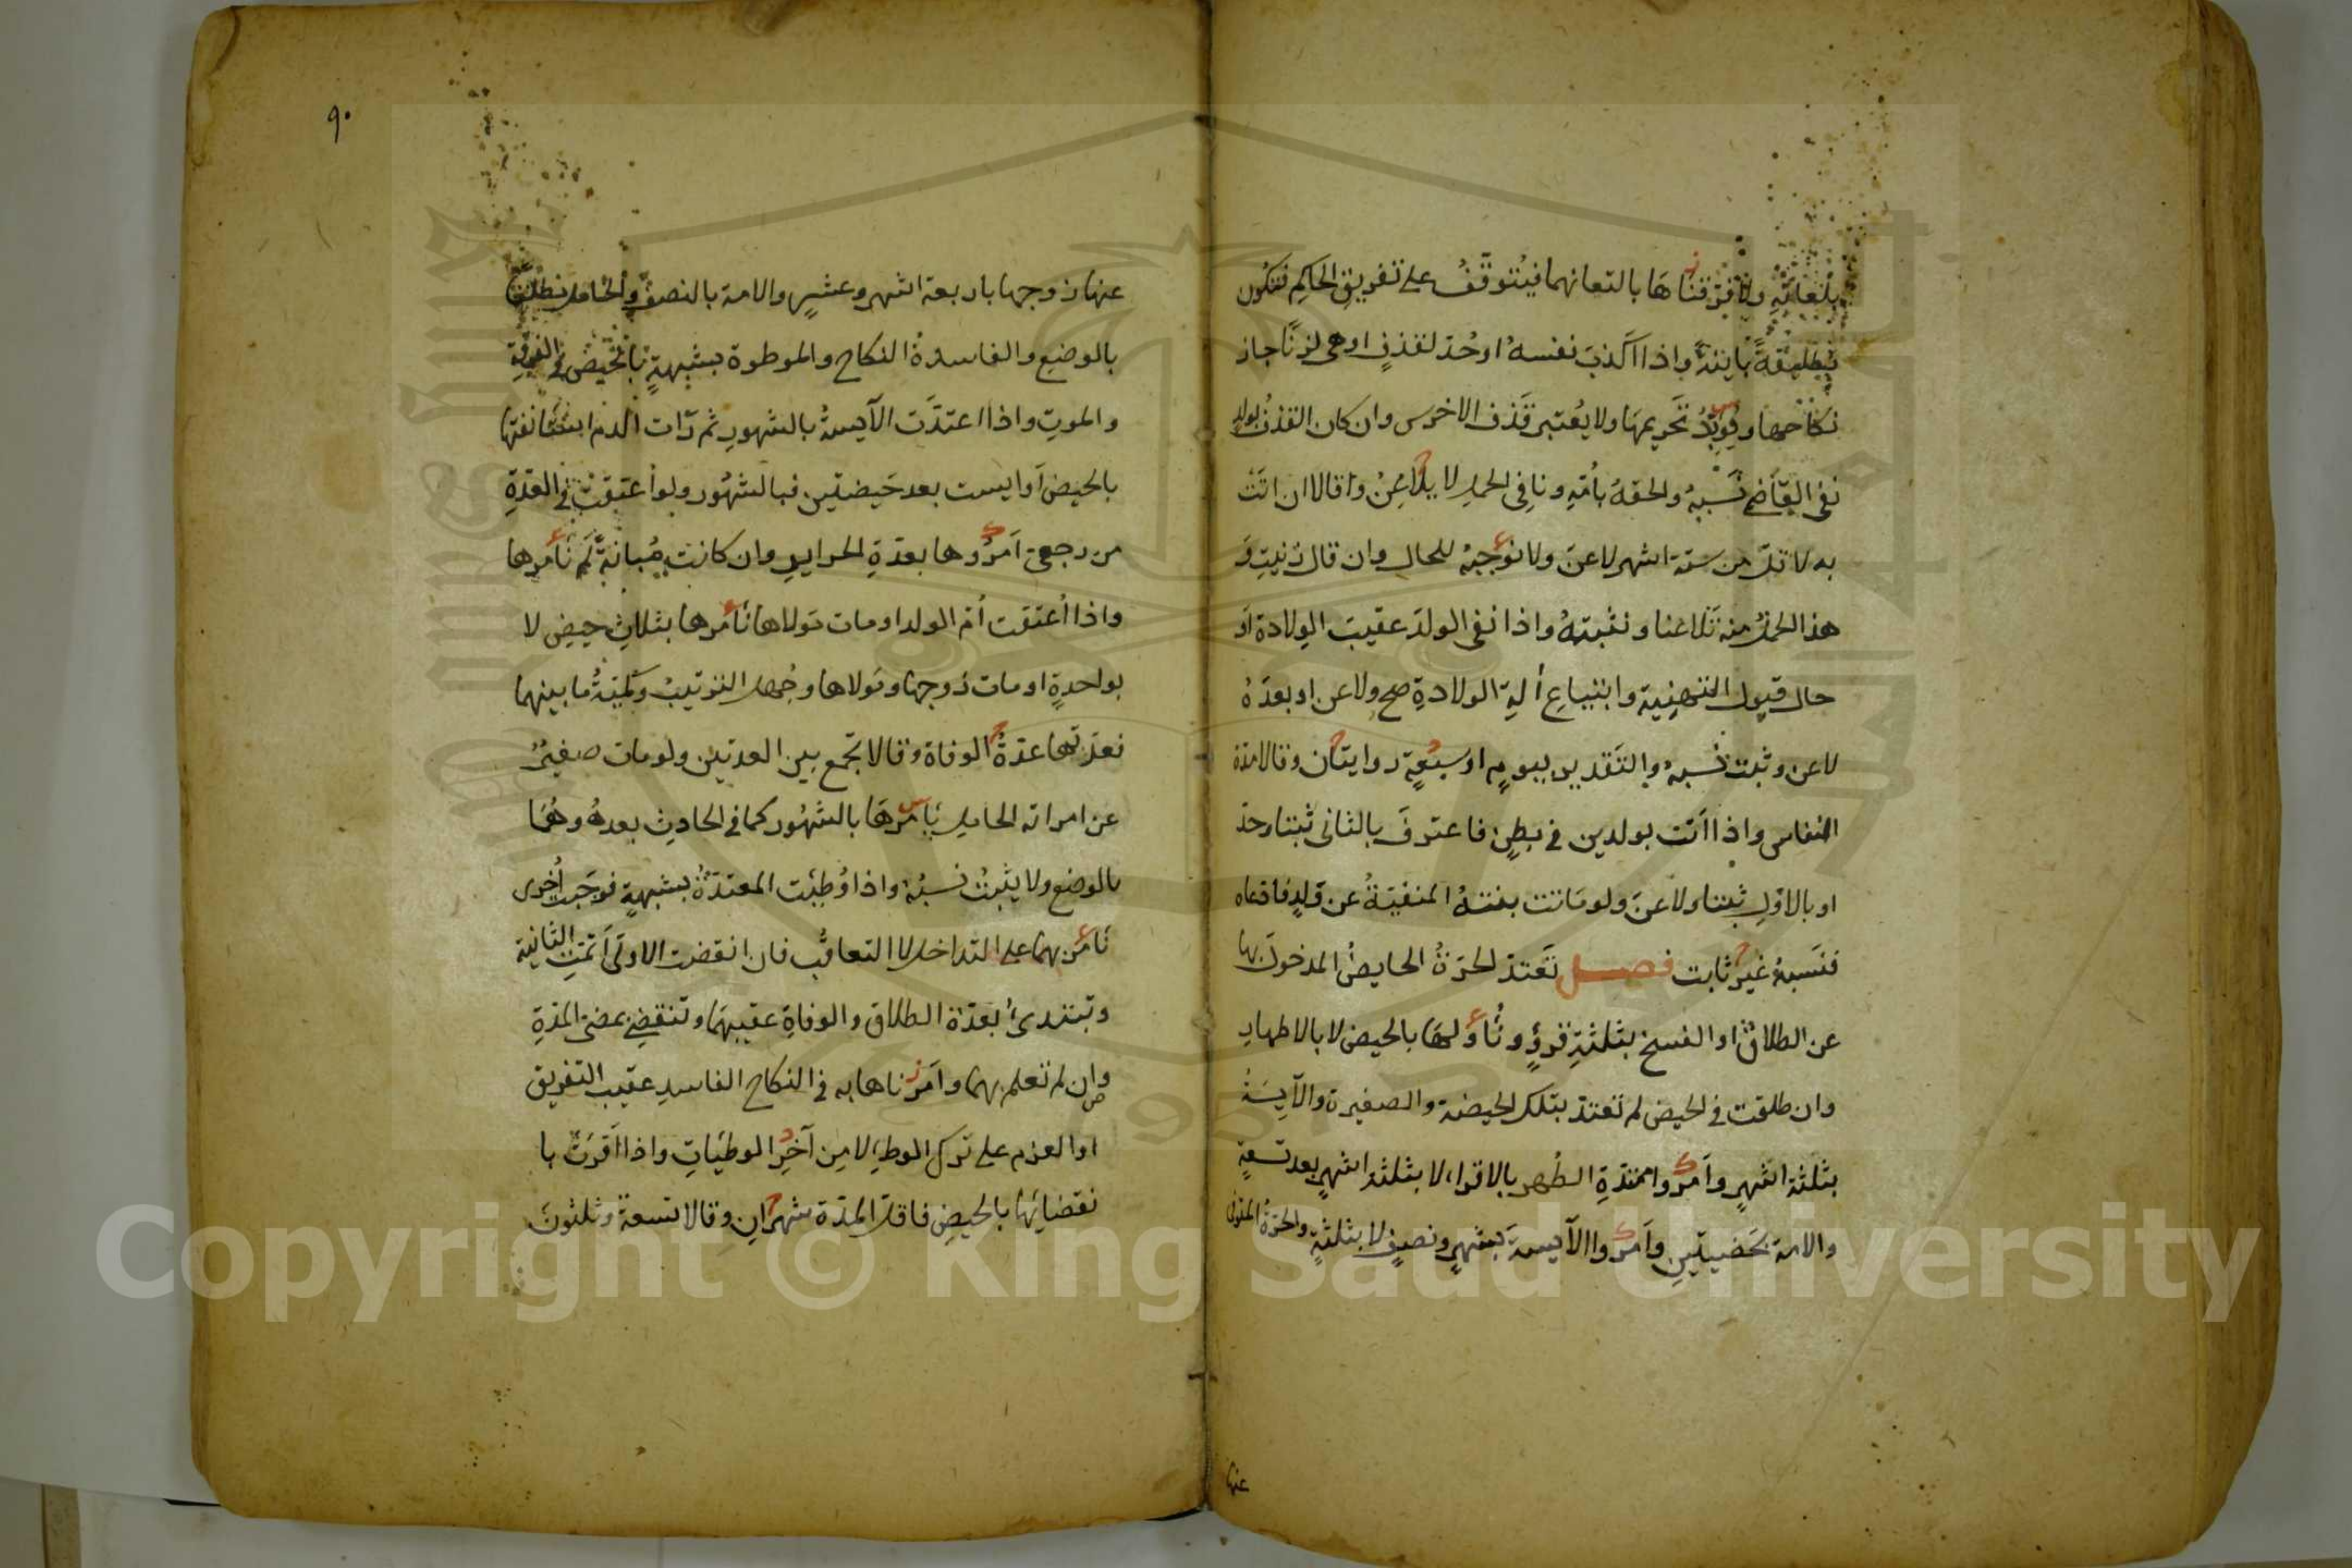 بلعانه ولا فرقناها بالتعانهما فيتوقف على تفريق الحاكم فتكون
تطليقة باينة واذا اكذب نفسه اوحد لقذف اوهى لزنا جاز
نكاحها ويؤبد تحريمها ولا يعتبر قذف الاخرس وان كان القذف بولد
نفى القاضى نسبه والحقه بامه ونافى الحمل لا يلاعن وقالا ان اتت
به لاقل من ستة اشهر لاعن ولا نوجبه للحال وان قال زنيت و
هذا الحمل منه تلاعنا ونثبته واذا نفى الولد عقيب الولادة او
حال قبول التهنية وابتياع الة الولادة صح ولاعن او بعده
لاعن وثبت نسبه والتقدير بيوم او سبعة روايتان وقالا مدة
النفاس واذا اتت بولدين فى بطن فاعترف بالثانى ثبتا وحد
او بالاول ثبتا ولاعن ولو ماتت بنته المنفية عن ولد فادعاه
فنسبه غير ثابت فصل تعتد الحرة الحايض المدخول بها
عن الطلاق او الفسخ بثلثة قروء ونأولها بالحيض لا بالاطهار
وان طلقت فى الحيض لم تعتد بتلك الحيضة والصغيرة والآيسة
بثلثة اشهر وامروا ممتدة الطهر بالاقراء لا بثلثة اشهر بعد تسعة
والامة بحيضتين وامروا الآيسة بشهر ونصف لا بثلثة والحرة المتوفى
عنها
٩٠
عنها زوجها باربعة اشهر وعشر والامة بالنصف والحامل مطلقا
بالوضع والفاسدة النكاح والموطوة بشبهة بالحيض فى الفرقة
والموت واذا اعتدت الآيسة بالشهور ثم رات الدم استانفتها
بالحيض او ايست بعد حيضتين فبالشهور ولو اعتقت فى العدة
من رجعى امروها بعدة الحراير وان كانت مبانة لم نأمرها
واذا اعتقت ام الولد او مات مولاها نأمرها بثلاث حيض لا
بواحدة او مات زوجها ومولاها وجهل الترتيب وكمية ما بينهما
فعدتها عدة الوفاة وقالا تجمع بين العدتين ولو مات صغير
عن امراته الحامل يأمرها بالشهور كما فى الحادث بعده وهما
بالوضع ولا يثبت نسبه واذا وطئت المعتدة بشبهة فوجبت اخرى
نأمر بهما على التداخل لا التعاقب فان انقضت الاولى اتمت الثانية
وتبتدئ بعدة الطلاق والوفاة عقيبهما وتنقضى بمضى المدة
وان لم تعلم بهما وامرناها به فى النكاح الفاسد عقيب التفريق
او العزم على ترك الوطء لا من آخر الوطيات واذا اقرت با
نقضايها بالحيض فاقل المدة شهران وقالا تسعة وثلثون
Copyright © King Saud University